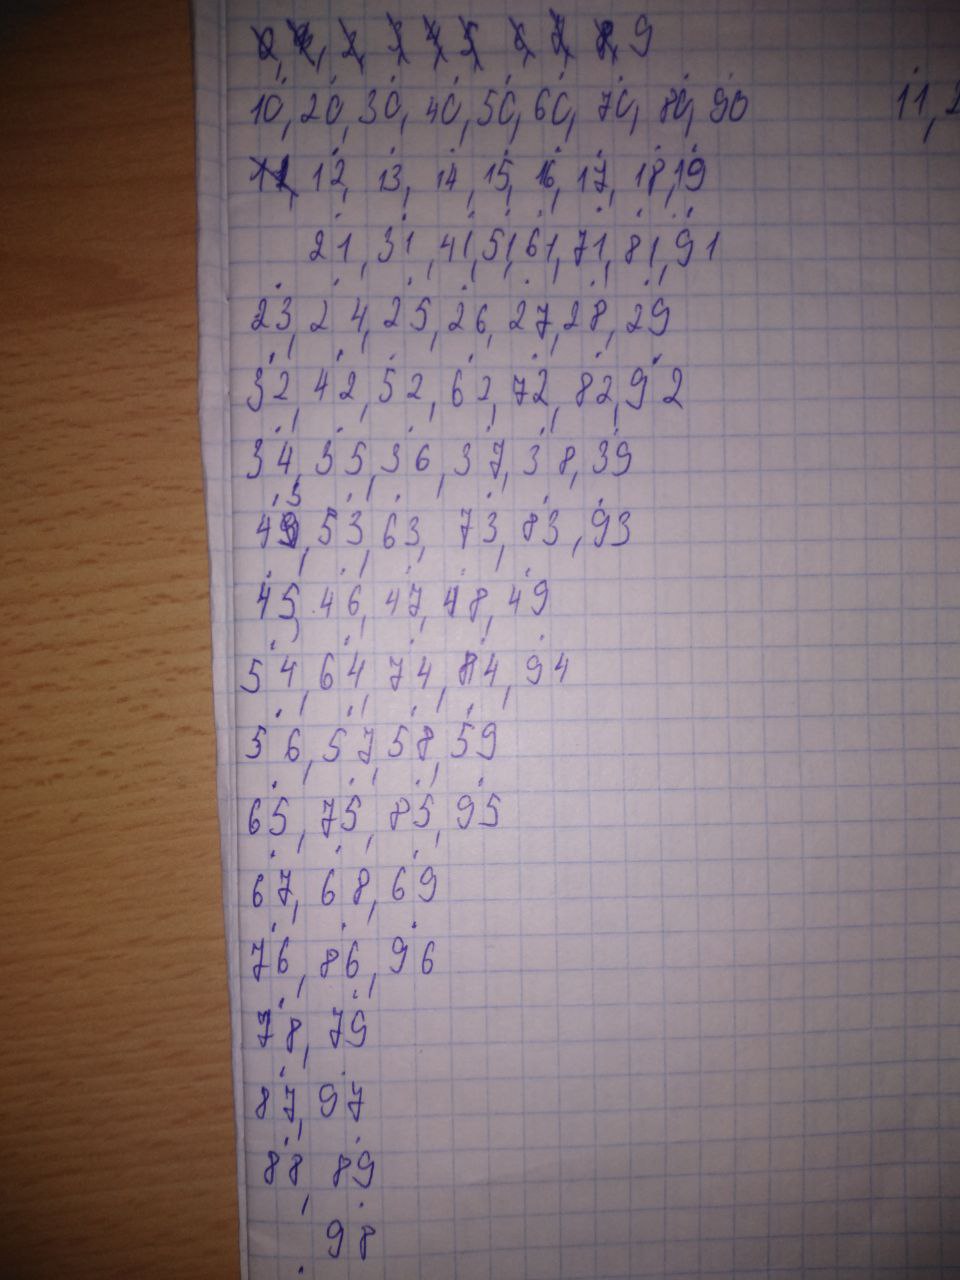 9
10, 20, 30, 40, 50, 60, 70, 80, 90 11,
12, 13, 14, 15, 16, 17, 18, 19
21, 31, 41, 51, 61, 71, 81, 91
23, 24, 25, 26, 27, 28, 29
32, 42, 52, 62, 72, 82, 92
34, 35, 36, 37, 38, 39
43, 53, 63, 73, 83, 93
45, 46, 47, 48, 49
54, 64, 74, 84, 94
56, 57, 58, 59
65, 75, 85, 95
67, 68, 69
76, 86, 96
78, 79
87, 97
88, 89
98